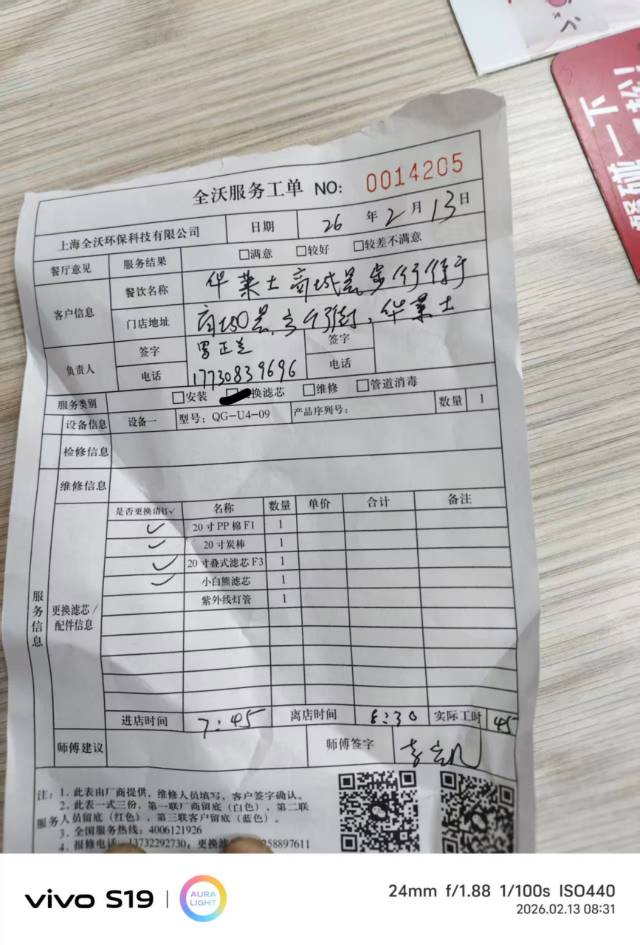 全沃服务工单 NO: 0014205
上海全沃环保科技有限公司 日期 26 年 2 月 13 日
餐厅意见 服务结果 □满意 □较好 □较差不满意
客户信息 餐饮名称 华莱士商城县
门店地址 华莱士
负责人 签字 签字
电话 17730839696 电话
服务类别 □安装 换滤芯 □维修 □管道消毒
设备信息 设备一 型号: QG-U4-09 产品序列号: 数量 1
检修信息
维修信息
服务信息
更换滤芯/配件信息
是否更换请打√ 名称 数量 单价 合计 备注
✓ 20寸PP棉F1 1
✓ 20寸炭棒 1
✓ 20寸叠式滤芯F3 1
✓ 小白熊滤芯 1
紫外线灯管 1
进店时间 7:45 离店时间 8:30 实际工时 45
师傅建议 师傅签字
注: 1. 此表由厂商提供, 维修人员填写, 客户签字确认。
2. 此表一式三份, 第一联厂商留底(白色)、第二联
服务人员留底(红色)、第三联客户留底(蓝色)。
3. 全国服务热线: 4006121926
4. 报修电话 13732292730, 更换滤 58897611
碰一下
vivo S19
AURA LIGHT
24mm f/1.88 1/100s ISO440
2026.02.13 08:31